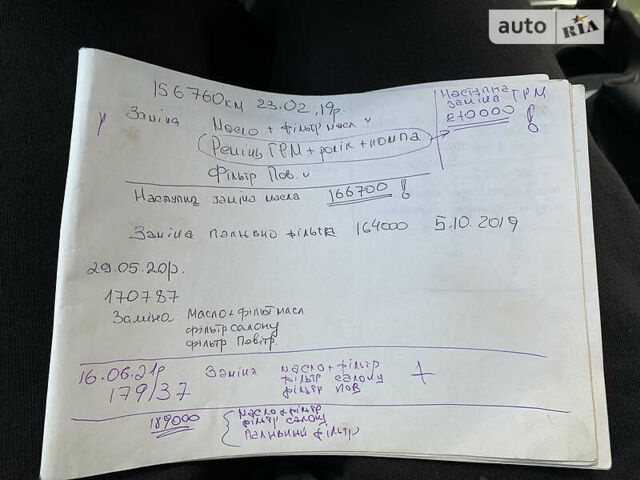 auto RIA
156760км 23.02.19р.
Заміна масло + фільтр масл v
Ремінь ГРМ + ролік + помпа
Фільтр Пов. v
Наступна
заміна ГРМ
210000 !
Наступна заміна масла 166700 !
Заміна пальівно фільтр 164000 5.10.2019
29.05.20р.
170787
Заміна масло + фільт масл
фільтр салону
фільтр Повітр.
16.06.21р Заміна масло + фільтр
179137 фільтр салону +
фільтр пов
189000 масло + фільтр
фільтр салону
пальний фільтр